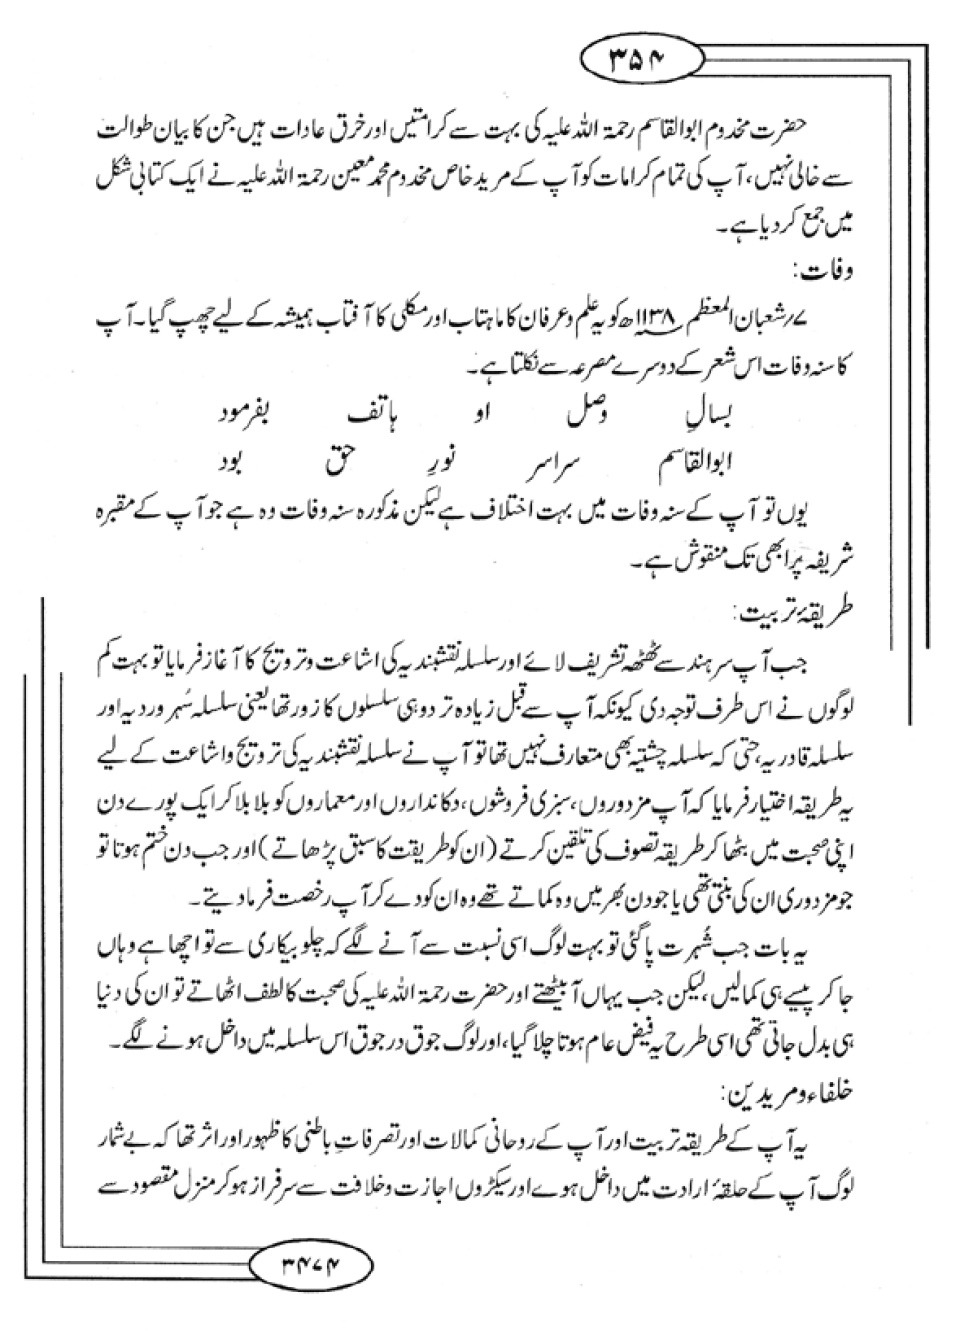 ۳۵۴
حضرت مخدوم ابوالقاسم رحمۃ اللہ علیہ کی بہت سے کرامتیں اور خرق عادات ہیں جن کا بیان طوالت
سے خالی نہیں، آپ کی تمام کرامات کو آپ کے مرید خاص مخدوم محمد معین رحمۃ اللہ علیہ نے ایک کتابی شکل
میں جمع کر دیا ہے۔
وفات:
۷/شعبان المعظم ۱۱۳۸ھ کو یہ علم و عرفان کا ماہتاب اور مکلی کا آفتاب ہمیشہ کے لیے چھپ گیا۔ آپ
کا سنہ وفات اس شعر کے دوسرے مصرعہ سے نکلتا ہے۔
بسالِ وصل او ہاتف بفرمود
ابوالقاسم سراسر نورِ حق بود
یوں تو آپ کے سنہ وفات میں بہت اختلاف ہے لیکن مذکورہ سنہ وفات وہ ہے جو آپ کے مقبرہ
شریفہ پر ابھی تک منقوش ہے۔
طریقۂ تربیت:
جب آپ سرہند سے ٹھٹھہ تشریف لائے اور سلسلہ نقشبندیہ کی اشاعت و ترویج کا آغاز فرمایا تو بہت کم
لوگوں نے اس طرف توجہ دی کیونکہ آپ سے قبل زیادہ تر دو ہی سلسلوں کا زور تھا یعنی سلسلہ سُہروردیہ اور
سلسلہ قادریہ، حتی کہ سلسلہ چشتیہ بھی متعارف نہیں تھا تو آپ نے سلسلہ نقشبندیہ کی ترویج و اشاعت کے لیے
یہ طریقہ اختیار فرمایا کہ آپ مزدوروں، سبزی فروشوں، دکانداروں اور معماروں کو بلا بلا کر ایک پورے دن
اپنی صحبت میں بٹھا کر طریقہ تصوف کی تلقین کرتے (ان کو طریقت کا سبق پڑھاتے) اور جب دن ختم ہوتا تو
جو مزدوری ان کی بنتی تھی یا جو دن بھر میں وہ کماتے تھے وہ ان کو دے کر آپ رخصت فرما دیتے۔
یہ بات جب شُہرت پا گئی تو بہت لوگ اسی نسبت سے آنے لگے کہ چلو بیکاری سے تو اچھا ہے وہاں
جا کر پیسے ہی کمالیں، لیکن جب یہاں آ بیٹھتے اور حضرت رحمۃ اللہ علیہ کی صحبت کا لطف اٹھاتے تو ان کی دنیا
ہی بدل جاتی تھی اسی طرح یہ فیض عام ہوتا چلا گیا، اور لوگ جوق در جوق اس سلسلہ میں داخل ہونے لگے۔
خلفاء و مریدین:
یہ آپ کے طریقہ تربیت اور آپ کے روحانی کمالات اور تصرفاتِ باطنی کا ظہور اور اثر تھا کہ بے شمار
لوگ آپ کے حلقۂ ارادت میں داخل ہوے اور سیکڑوں اجازت و خلافت سے سرفراز ہو کر منزل مقصود سے
۳۴۷۴